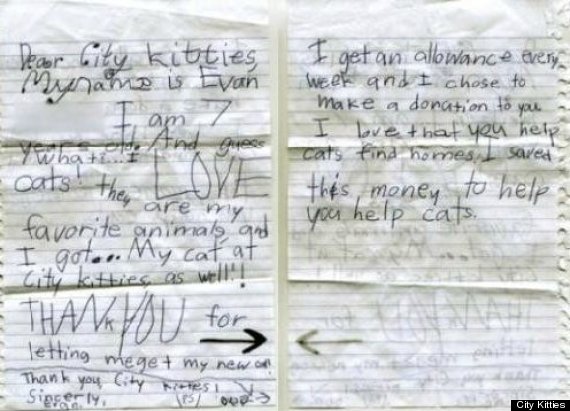 Dear City kitties,
My name is Evan
I am 7
years old. And guess
what!...I LOVE
cats! they are my
favorite animals, and
I got... My cat at
City kitties, as well!!
THANK YOU for
letting me get my new cat!
Thank you City kitties!
Sincerly, (PS)
Evan
I get an allowance every
week and I chose to
make a donation to you
I love that you help
cats find homes. I saved
this money to help
you help cats.
City Kitties